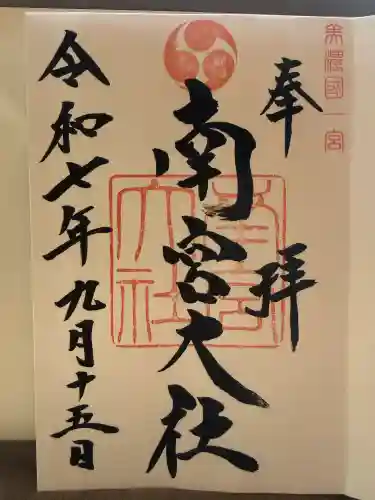 美濃國一宮
奉拝
南宮大社
南宮大社
令和七年九月十五日